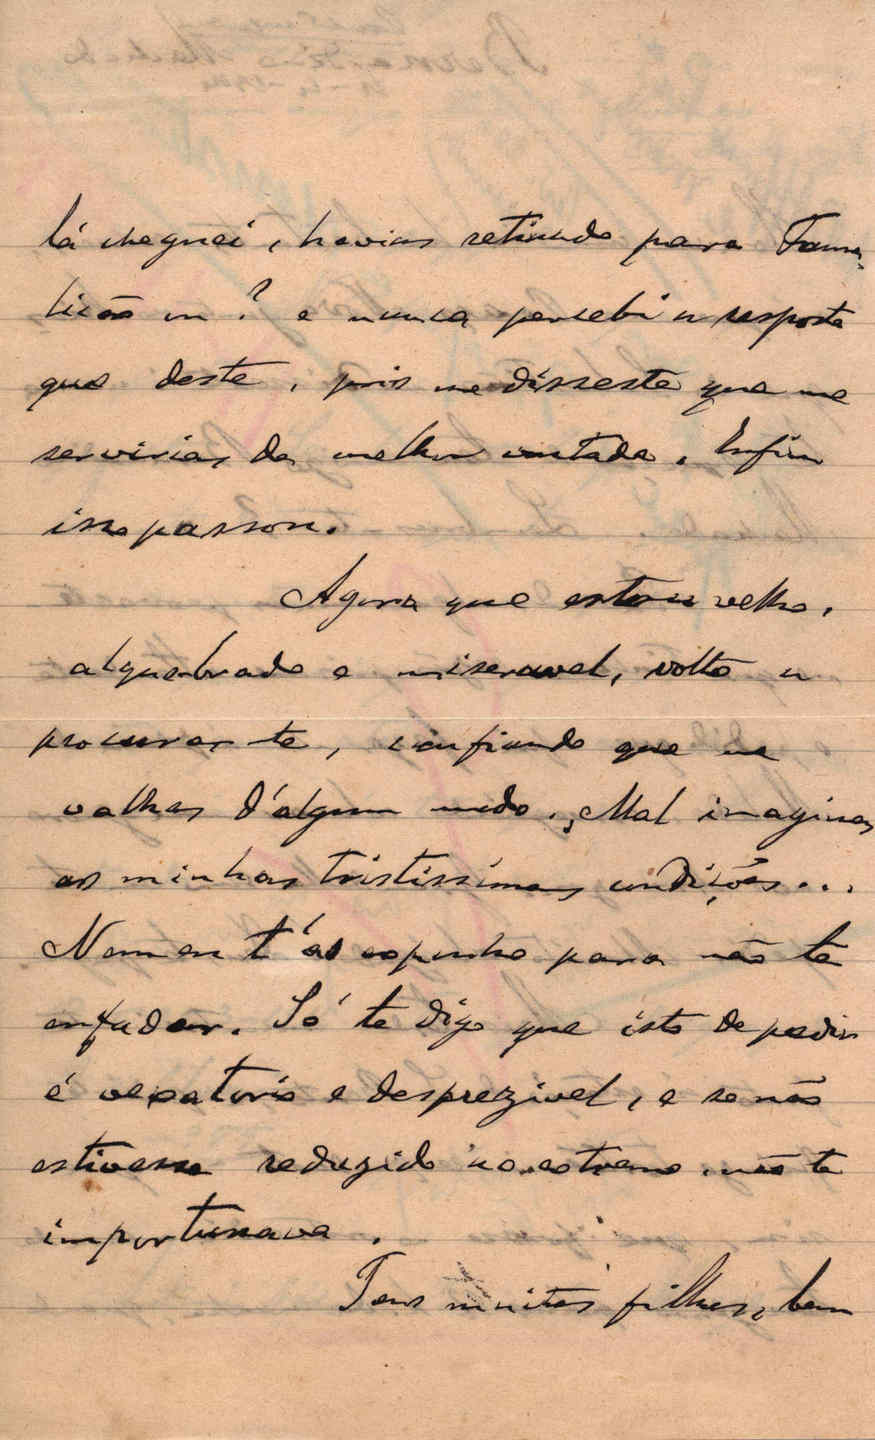 lá cheguei, havias retirado para Fama-
licão ou? e nunca percebi a resposta
que deste, pois me disseste que me
servirias da melhor vontade. Enfim
isso passou.
Agora que estou velho,
alquebrado e miseravel, volto a
procurar-te, confiando que me
valhas d'algum modo. Mal imaginas
as minhas tristissimas condições...
Nem eu t'as exponho para não te
enfadar. Só te digo que isto de pedir
é vexatorio e desprezivel, e se não
estivesse reduzido ao extremo não te
importunava.
Tens muitos filhos, bem